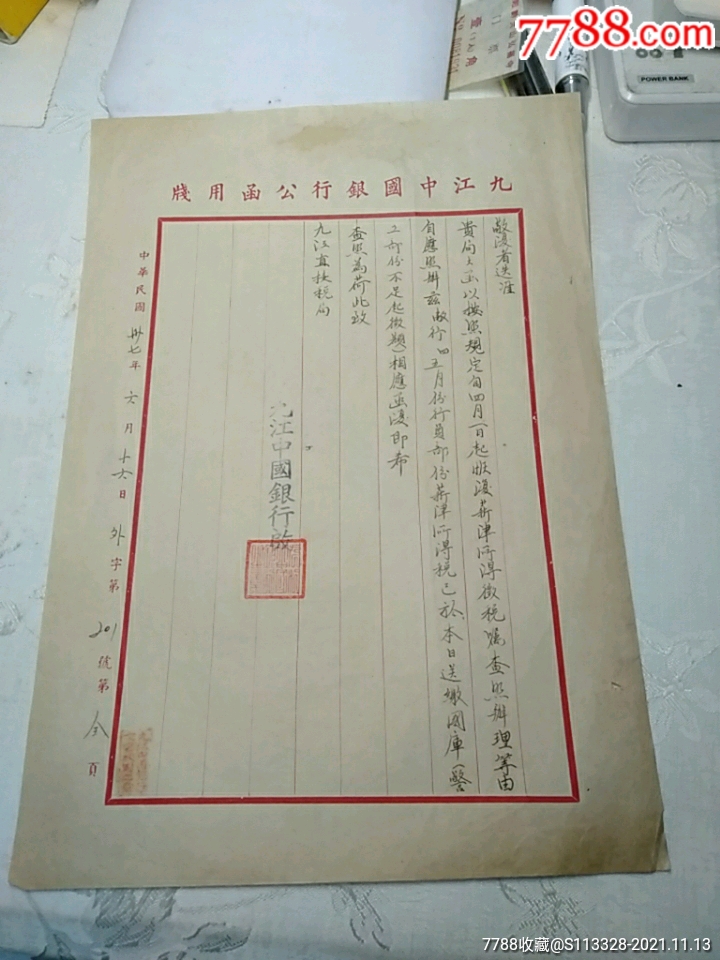 7788.com
POWER BANK
九江中國銀行公函用牋
敬復者迭准
貴局大函以按照規定自四月一日起恢復薪津所得徵稅囑查照辦理等由
自應照辦茲敝行四五月份行員部份薪津所得稅已於本日送繳國庫（警
工部份不足起徵額）相應函復即希
查照為荷此致
九江直接稅局
九江中國銀行啟
中華民國卅七年六月十六日外字第201號第全頁
7788收藏@S113328-2021.11.13